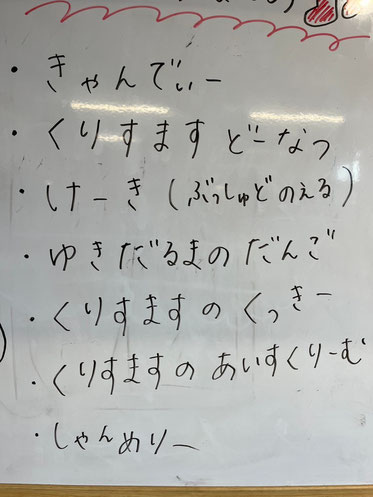 ・きゃんでぃー
・くりすますどーなつ
・けーき(ぶっしゅどのえる)
・ゆきだるまのだんご
・くりすますのくっきー
・くりすますのあいすくりーむ
・しゃんめりー